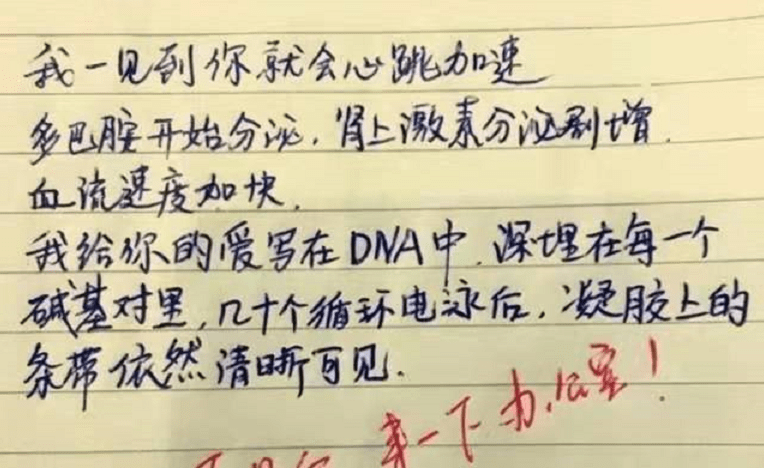 我一见到你就会心跳加速
多巴胺开始分泌，肾上激素分泌剧增.
血流速度加快.
我给你的爱写在DNA中.深埋在每一个
碱基对里，几十个循环电泳后，凝胶上的
条带依然清晰可见.
来一下办公室！